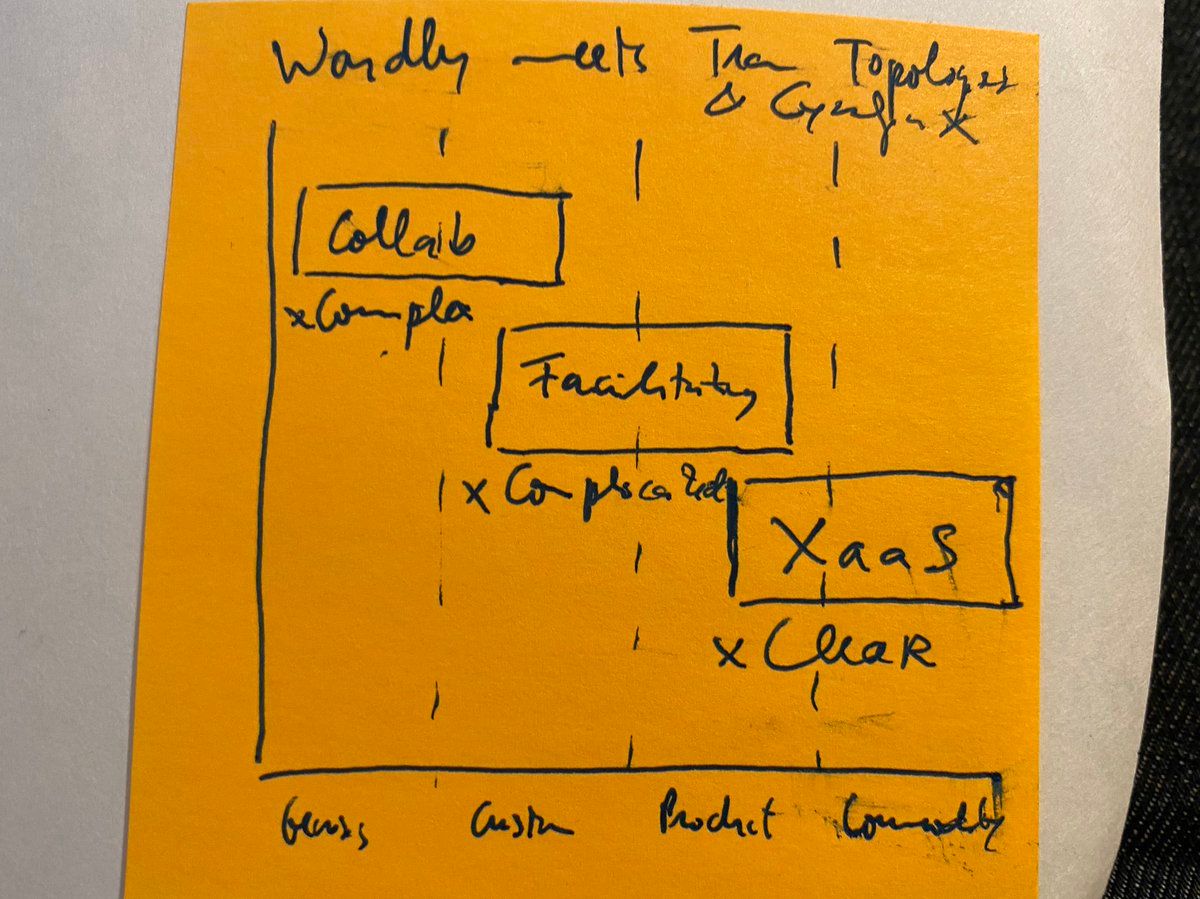 Wardley meets Team Topologies
& Cynefin
Collab
x Complex
Facilitating
x Complicated
XaaS
x Clear
Genesis Custom Product Commodity